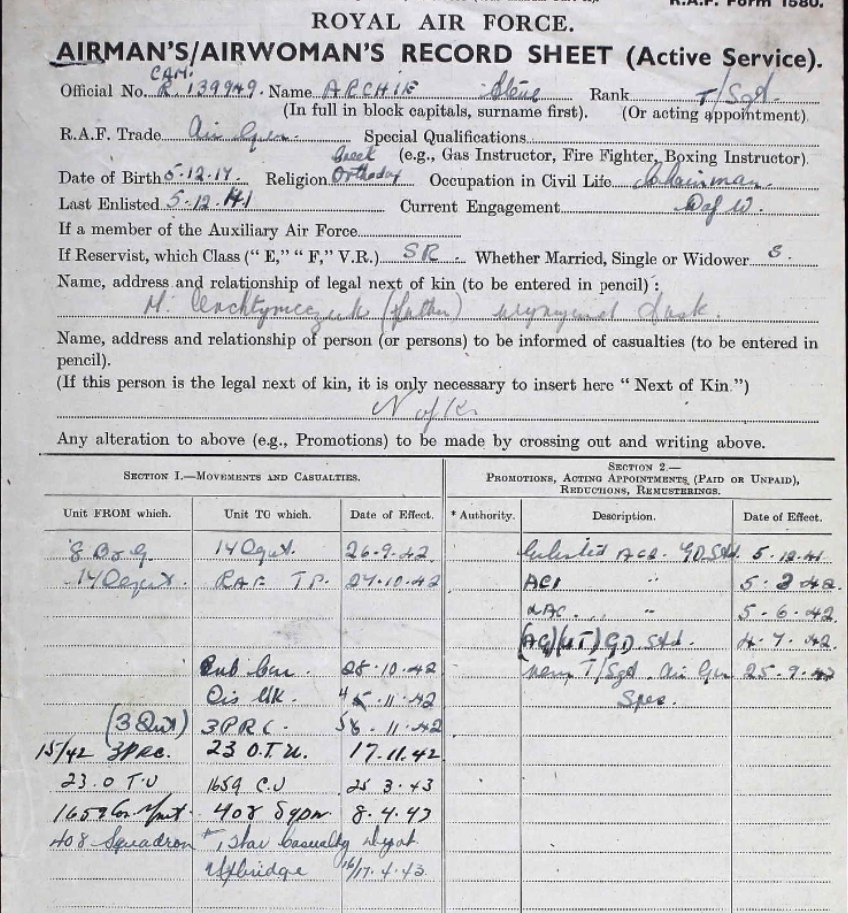 R.A.F. Form 1580.
ROYAL AIR FORCE.
AIRMAN'S/AIRWOMAN'S RECORD SHEET (Active Service).
CAN.
Official No. R.139949. Name ARCHIE Steve Rank T/Sgt.
(In full in block capitals, surname first). (Or acting appointment).
R.A.F. Trade Air Gun. Special Qualifications
(e.g., Gas Instructor, Fire Fighter, Boxing Instructor).
Greek
Date of Birth 5.12.17. Religion Orthodox Occupation in Civil Life
Last Enlisted 5.12.41 Current Engagement D of W.
If a member of the Auxiliary Air Force
If Reservist, which Class (" E," " F," V.R.) SR Whether Married, Single or Widower S.
Name, address and relationship of legal next of kin (to be entered in pencil) :
M. (father) Sask.
Name, address and relationship of person (or persons) to be informed of casualties (to be entered in
pencil).
(If this person is the legal next of kin, it is only necessary to insert here " Next of Kin.")
N of K
Any alteration to above (e.g., Promotions) to be made by crossing out and writing above.
SECTION 1.—MOVEMENTS AND CASUALTIES. SECTION 2.—
PROMOTIONS, ACTING APPOINTMENTS (PAID OR UNPAID),
REDUCTIONS, REMUSTERINGS.
Unit FROM which. Unit TO which. Date of Effect. * Authority. Description. Date of Effect.
8 B&G 14 Dept. 26.9.42 Enlisted AC2. GD Std. 5.12.41
14 Dept. RAF TP. 27.10.42 AC1 " 5.3.42.
LAC. " 5.6.42.
(AG)(UT) GD. Std. 4.7.42.
Emb Can. 28.10.42 T/Sgt. Air Gun 25.9.42
Dis UK 4 5.11.42 Spec.
(3 Dist) 3 PRC. 5 6.11.42
15/42 3PRC. 23 O.T.U. 17.11.42
23. O T U 1659 C.U 25 3.43
1659 Con Unit 408 Sqdn. 8.4.43
408 Squadron Casualty
Uxbridge 16/17.4.43.